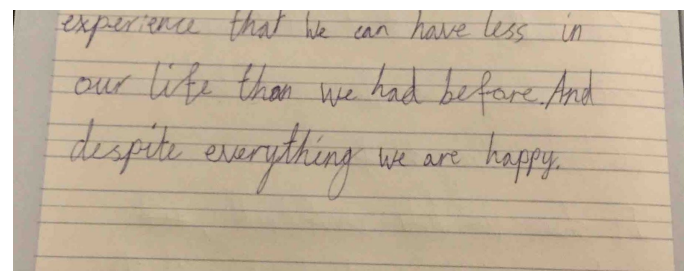 experience that we can have less in
our life than we had before. And
despite everything we are happy.